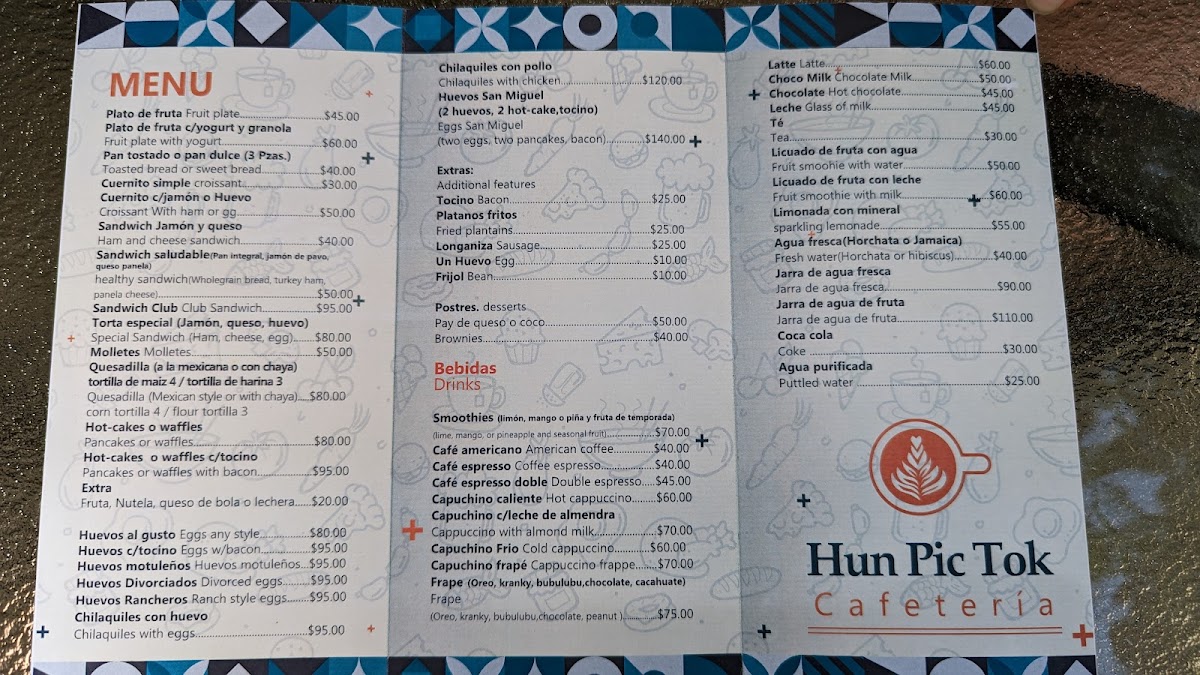 MENU
Plato de fruta Fruit plate $45.00
Plato de fruta c/yogurt y granola
Fruit plate with yogurt $60.00
Pan tostado o pan dulce (3 Pzas.)
Toasted bread or sweet bread $40.00
Cuernito simple croissant $30.00
Cuernito c/jamón o Huevo
Croissant With ham or gg $50.00
Sandwich Jamón y queso
Ham and cheese sandwich $40.00
Sandwich saludable(Pan integral, jamón de pavo,
queso panela)
healthy sandwich(Wholegrain bread, turkey ham,
panela cheese) $50.00
Sandwich Club Club Sandwich $95.00
Torta especial (Jamón, queso, huevo)
Special Sandwich (Ham, cheese, egg) $80.00
Molletes Molletes $50.00
Quesadilla (a la mexicana o con chaya)
tortilla de maiz 4 / tortilla de harina 3
Quesadilla (Mexican style or with chaya) $80.00
corn tortilla 4 / flour tortilla 3
Hot-cakes o waffles
Pancakes or waffles $80.00
Hot-cakes o waffles c/tocino
Pancakes or waffles with bacon $95.00
Extra
Fruta, Nutela, queso de bola o lechera $20.00
Huevos al gusto Eggs any style $80.00
Huevos c/tocino Eggs w/bacon $95.00
Huevos motuleños Huevos motuleños $95.00
Huevos Divorciados Divorced eggs $95.00
Huevos Rancheros Ranch style eggs $95.00
Chilaquiles con huevo
Chilaquiles with eggs $95.00
Chilaquiles con pollo
Chilaquiles with chicken $120.00
Huevos San Miguel
(2 huevos, 2 hot-cake,tocino)
Eggs San Miguel
(two eggs, two pancakes, bacon) $140.00
Extras:
Additional features
Tocino Bacon $25.00
Platanos fritos
Fried plantains $25.00
Longaniza Sausage $25.00
Un Huevo Egg $10.00
Frijol Bean $10.00
Postres. desserts
Pay de queso o coco $50.00
Brownies $40.00
Bebidas
Drinks
Smoothies (limón, mango o piña y fruta de temporada)
(lime, mango, or pineapple and seasonal fruit) $70.00
Café americano American coffee $40.00
Café espresso Coffee espresso $40.00
Café espresso doble Double espresso $45.00
Capuchino caliente Hot cappuccino $60.00
Capuchino c/leche de almendra
Cappuccino with almond milk $70.00
Capuchino Frio Cold cappuccino $60.00
Capuchino frapé Cappuccino frappe $70.00
Frape (Oreo, kranky, bubulubu,chocolate, cacahuate)
Frape
(Oreo, kranky, bubulubu,chocolate, peanut ) $75.00
Latte Latte $60.00
Choco Milk Chocolate Milk $50.00
Chocolate Hot chocolate $45.00
Leche Glass of milk $45.00
Té
Tea $30.00
Licuado de fruta con agua
Fruit smoohie with water $50.00
Licuado de fruta con leche
Fruit smoothie with milk $60.00
Limonada con mineral
sparkling lemonade $55.00
Agua fresca(Horchata o Jamaica)
Fresh water(Horchata or hibiscus) $40.00
Jarra de agua fresca
Jarra de agua fresca $90.00
Jarra de agua de fruta
Jarra de agua de fruta $110.00
Coca cola
Coke $30.00
Agua purificada
Puttled water $25.00
Hun Pic Tok
Cafetería